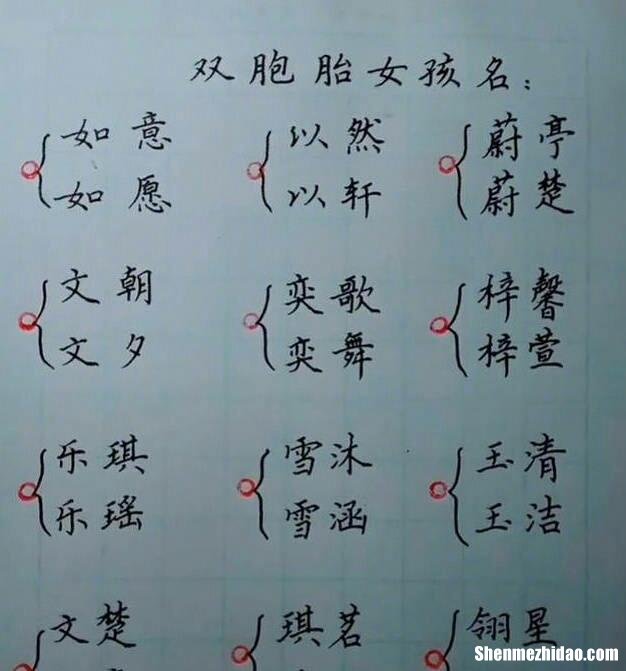 双胞胎女孩名：
如意 以然 蔚亭
如愿 以轩 蔚楚
文朝 奕歌 梓馨
文夕 奕舞 梓萱
乐琪 雪沐 玉清
乐瑶 雪涵 玉洁
文楚 琪茗 翎星
Shenmezhidao.com